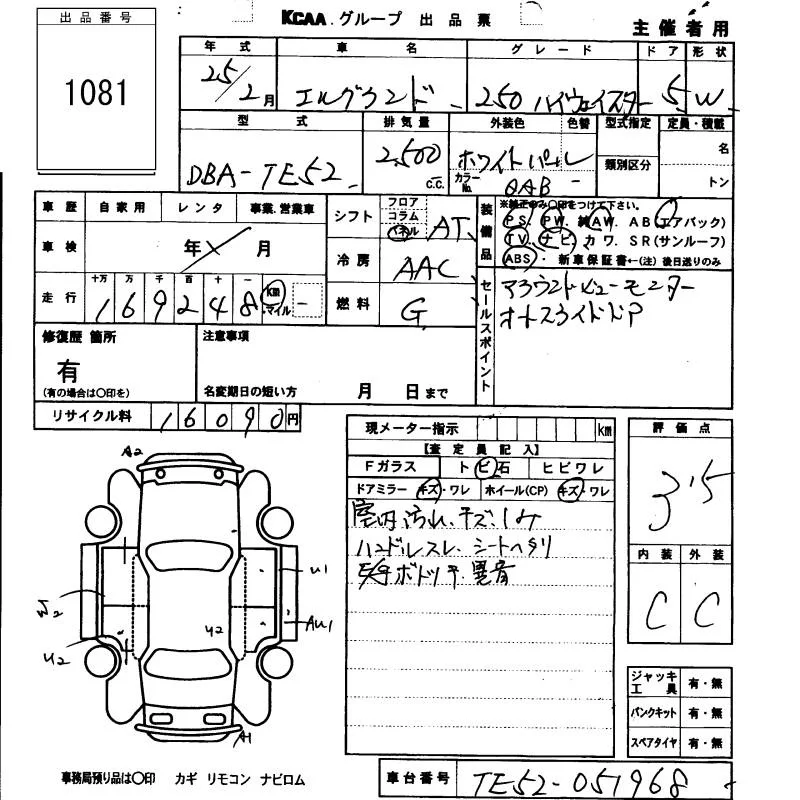 出品番号
1081
KCAA.グループ 出品票
主催者用
年式 車名 グレード ドア 形状
25/2月 エルグランド 250 ハイウェイスター 5 W
型式 排気量 外装色 色替 型式指定 定員・積載
DBA-TE52 2,500 c.c. ホワイトパール 類別区分 名
カラーNo. QAB トン
車歴 自家用 レンタ 事業.営業車
シフト フロア コラム パネル AT
車検 年 月
冷房 AAC
走行 十万 万 千 百 十 一
169248 km マイル
燃料 G
装備品 ※純正のみ○印をつけて下さい。
PS. PW. 純AW. AB(エアバック)
TV. ナビ. カワ. SR(サンルーフ)
ABS・ 新車保証書←(注) 後日送りのみ
セールスポイント
アラウンドビューモニター
オートスライドドア
修復歴 箇所
有
(有の場合は○印を)
注意事項
名変期日の短い方 月 日まで
リサイクル料 16090円
現メーター指示 km
【査定員記入】
Fガラス トビ石 ヒビワレ
ドアミラー キズ・ワレ ホイール(CP) キズ・ワレ
室内汚れ、キズ、シミ
ハンドルスレ、シートヘタリ
評価点
3.5
内装 外装
C C
A2
U1
AU1
W2
U2
U2
A1
ジャッキ工具 有・無
パンクキット 有・無
スペアタイヤ 有・無
事務局預り品は○印 カギ リモコン ナビロム
車台番号 TE52-051968